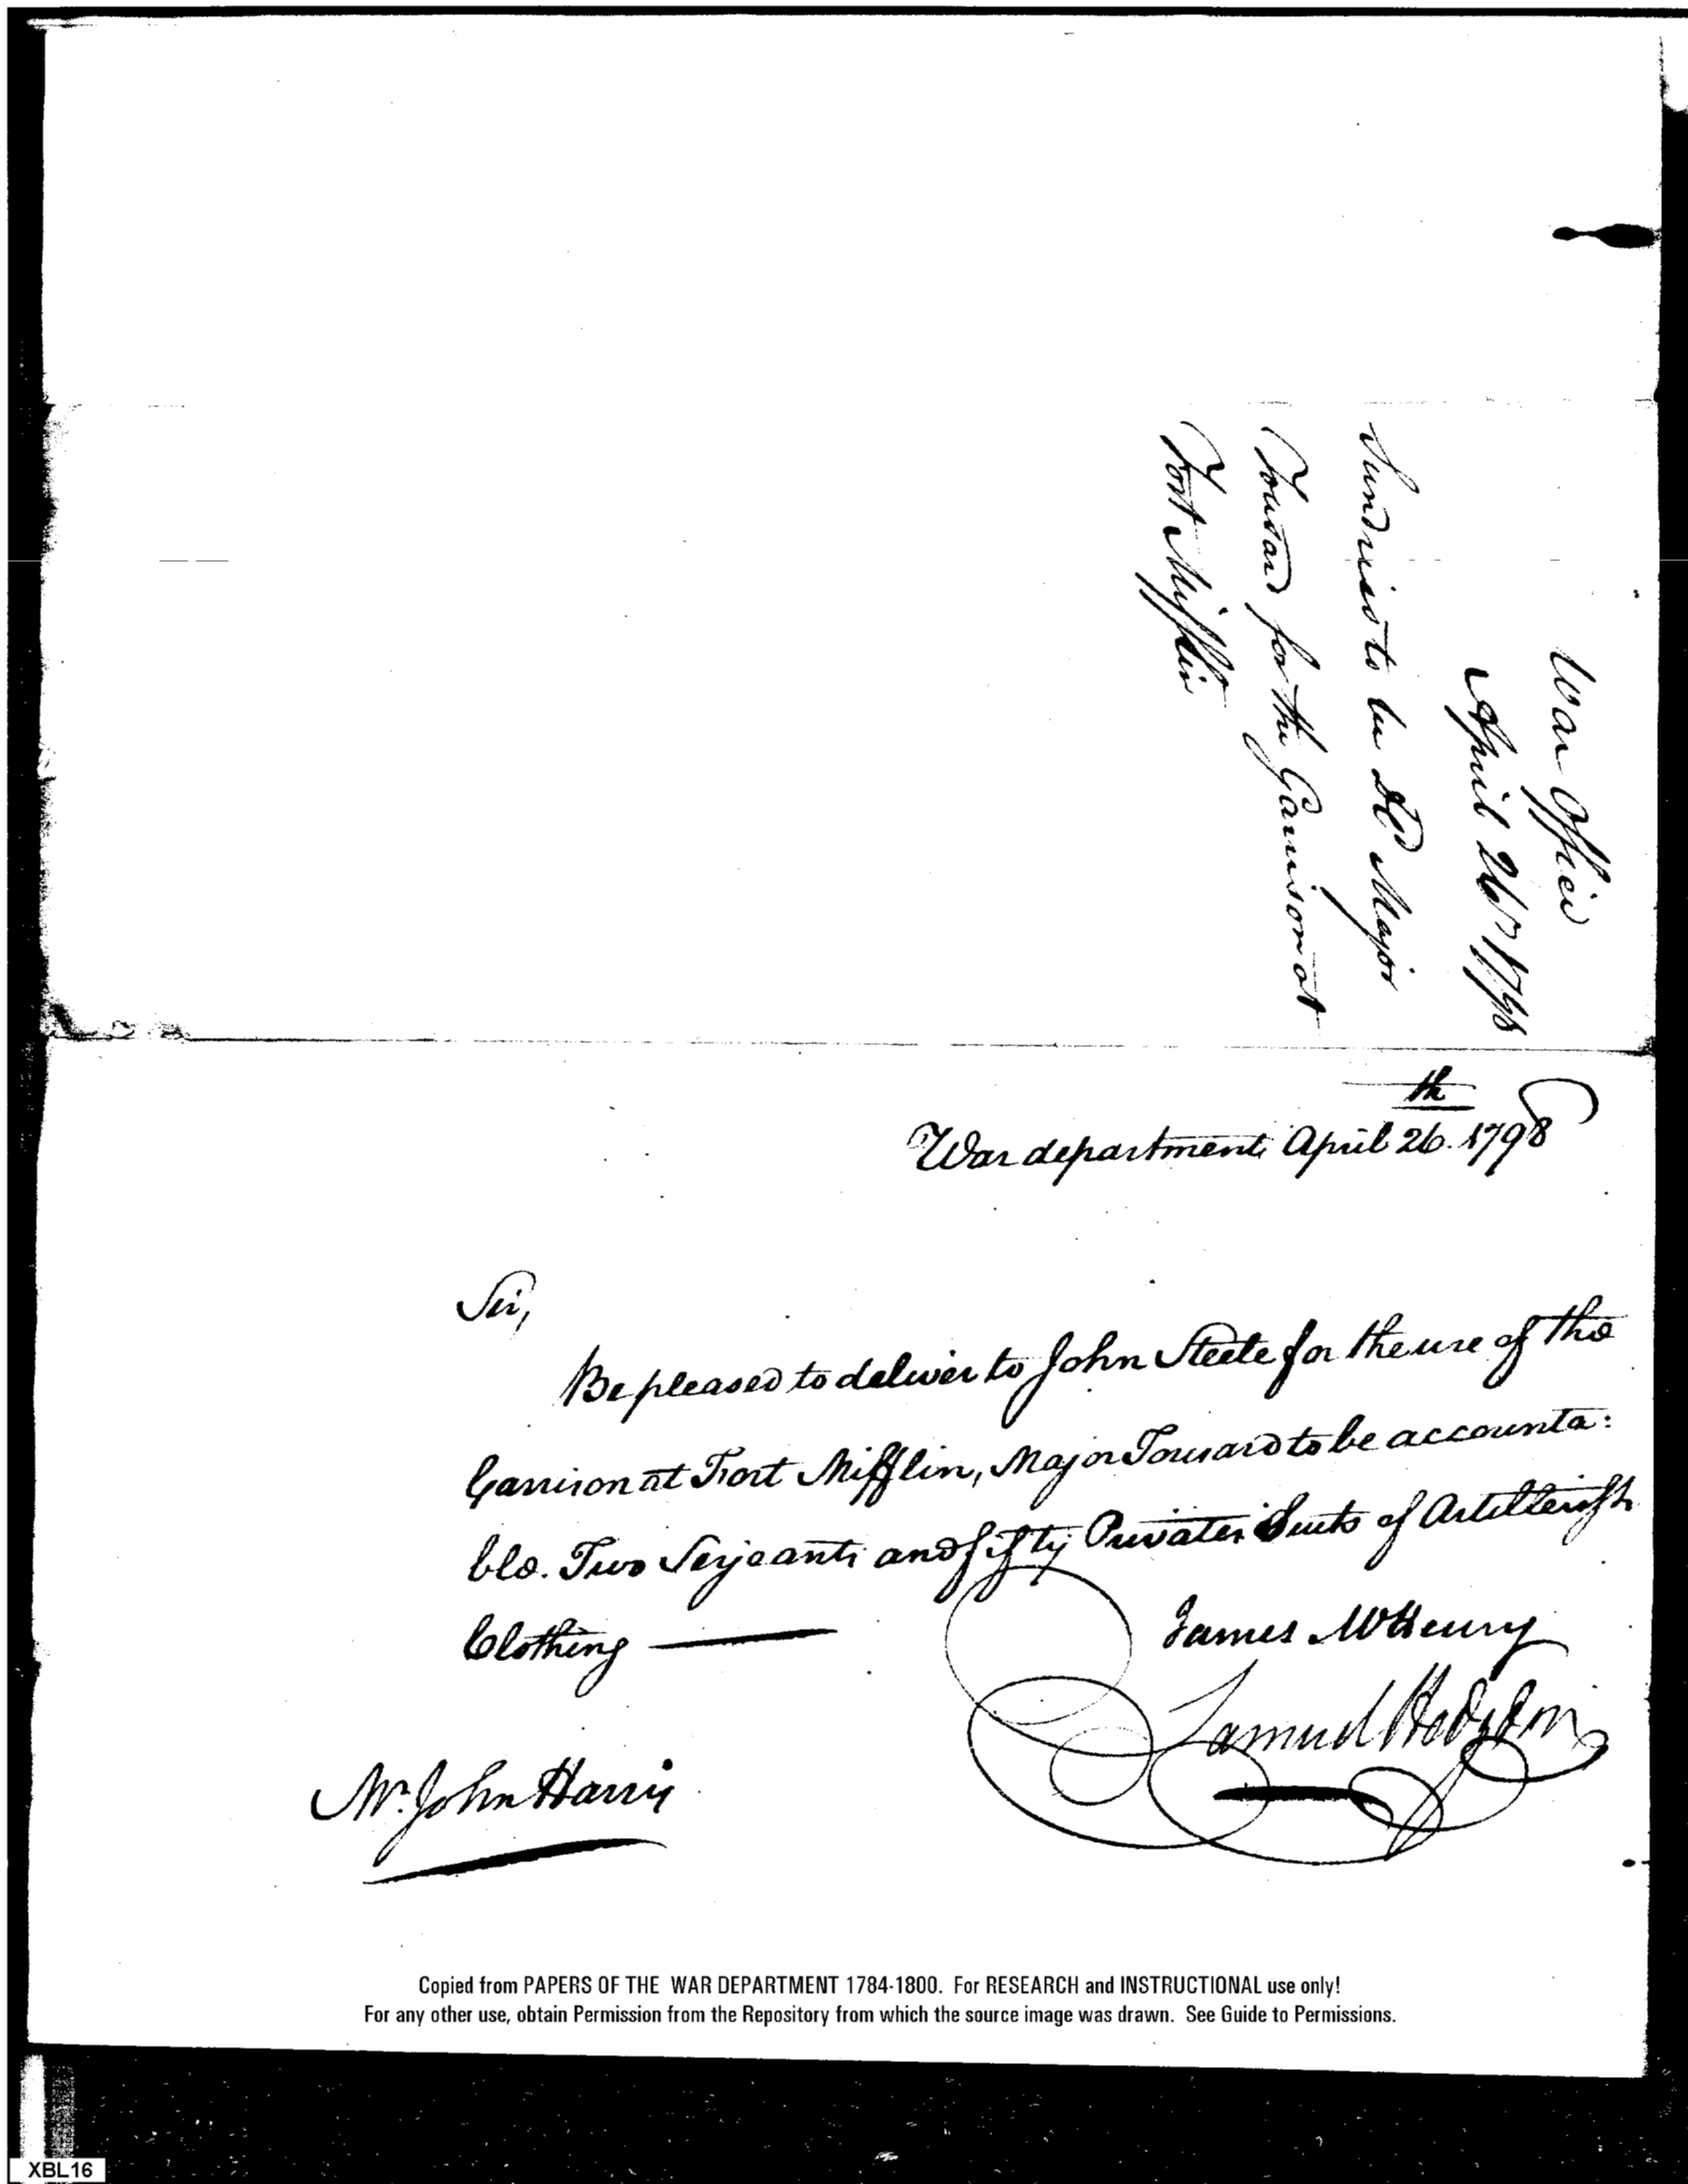 War Office
April 26th 1798
Sundries to be dd Major
Tousard for the Garrison at
Fort Mifflin
War department April 26th 1798
Sir,
Be pleased to deliver to John Steele for the use of the
Garrison at Fort Mifflin, Major Tousard to be accounta:
ble. Two Serjeants and fifty Privates Suits of Artillerists
Clothing
James McHenry
Samuel Hodgdon
Mr. John Harris
Copied from PAPERS OF THE WAR DEPARTMENT 1784-1800. For RESEARCH and INSTRUCTIONAL use only!
For any other use, obtain Permission from the Repository from which the source image was drawn. See Guide to Permissions.
XBL16